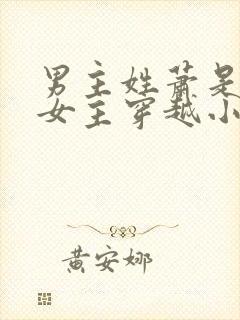 男主姓萧是
女主穿越小
黄安娜